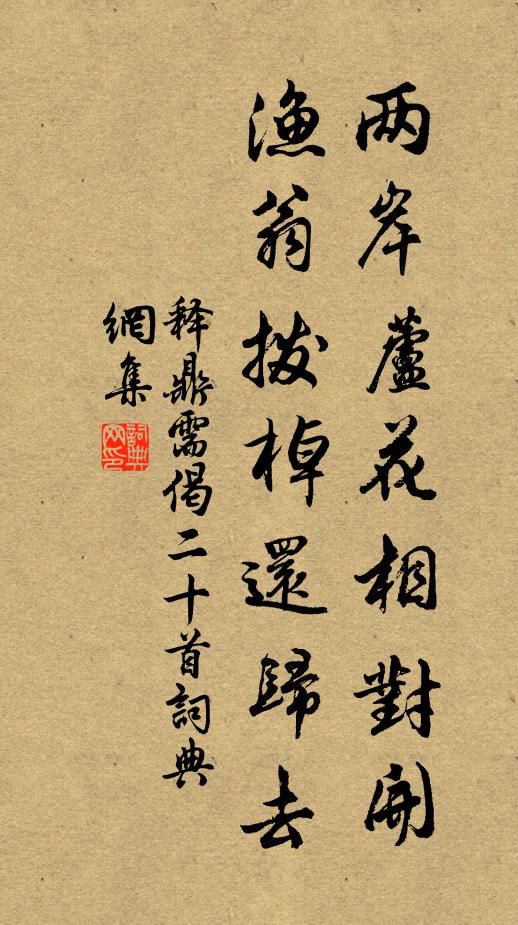 两岸蘆花相對開
漁翁撥棹還歸去
释鼎需偈二十首詞典
網集
詞典
网印